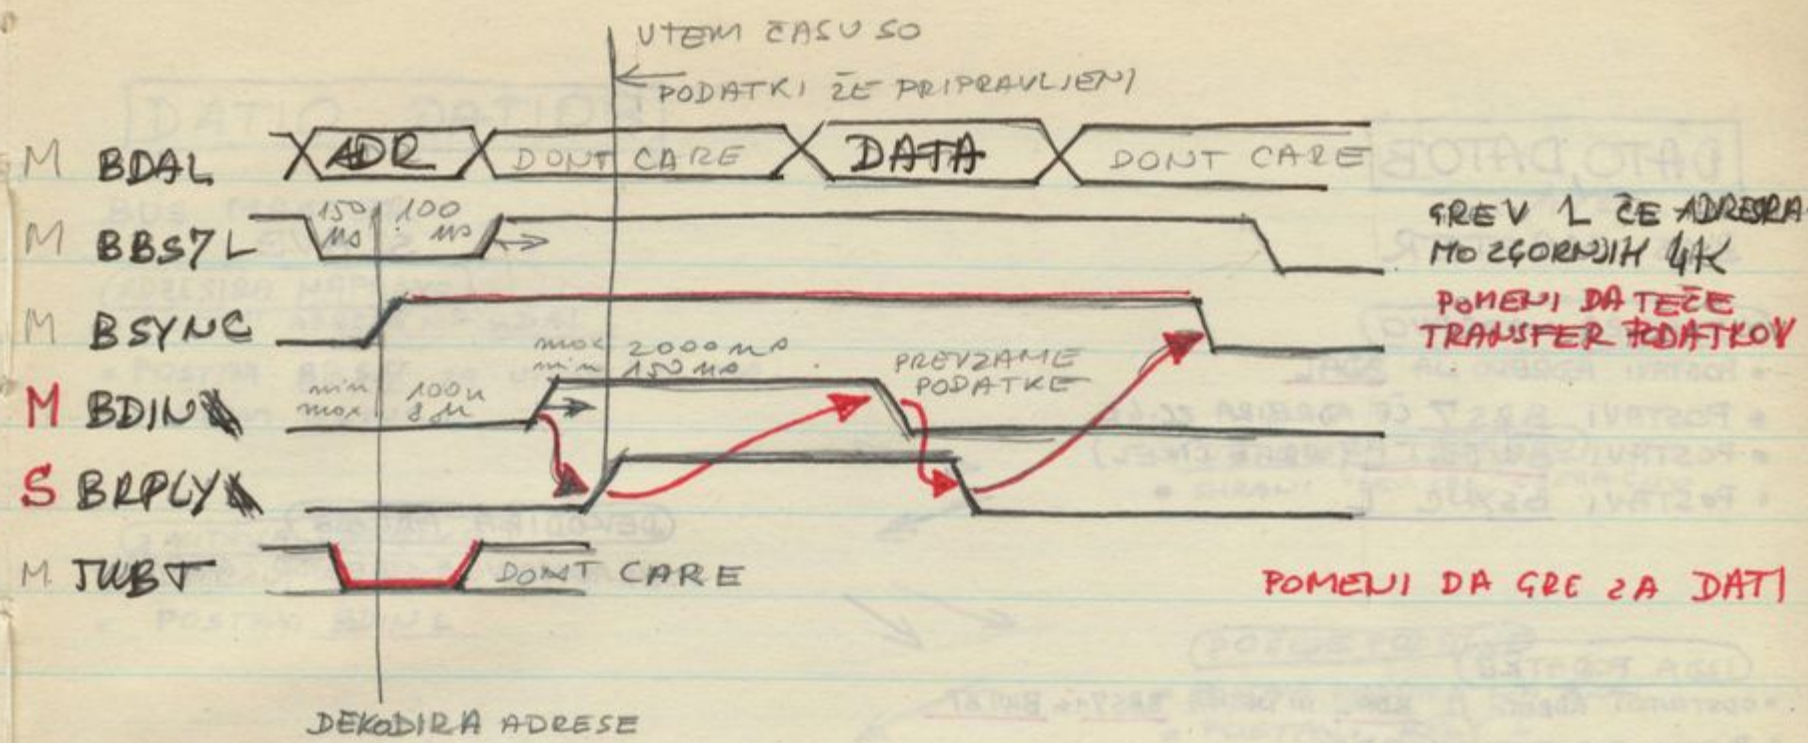 V TEM ČASU SO
PODATKI ŽE PRIPRAVLJENI
M BDAL ADR DONT CARE DATA DONT CARE
M BBS7 L 150 ns 100 ns
GRE V L ČE ADRESIRA
MO ZGORNJIH 4K
M BSYNC
POMENI DA TEČE
TRANSFER PODATKOV
max 2000 ns
min 150 ns
PREVZAME
PODATKE
M BDIN
min 100n
max 8µ
S BRPLY
M TWBT DONT CARE
POMENI DA GRE ZA DATI
DEKODIRA ADRESE